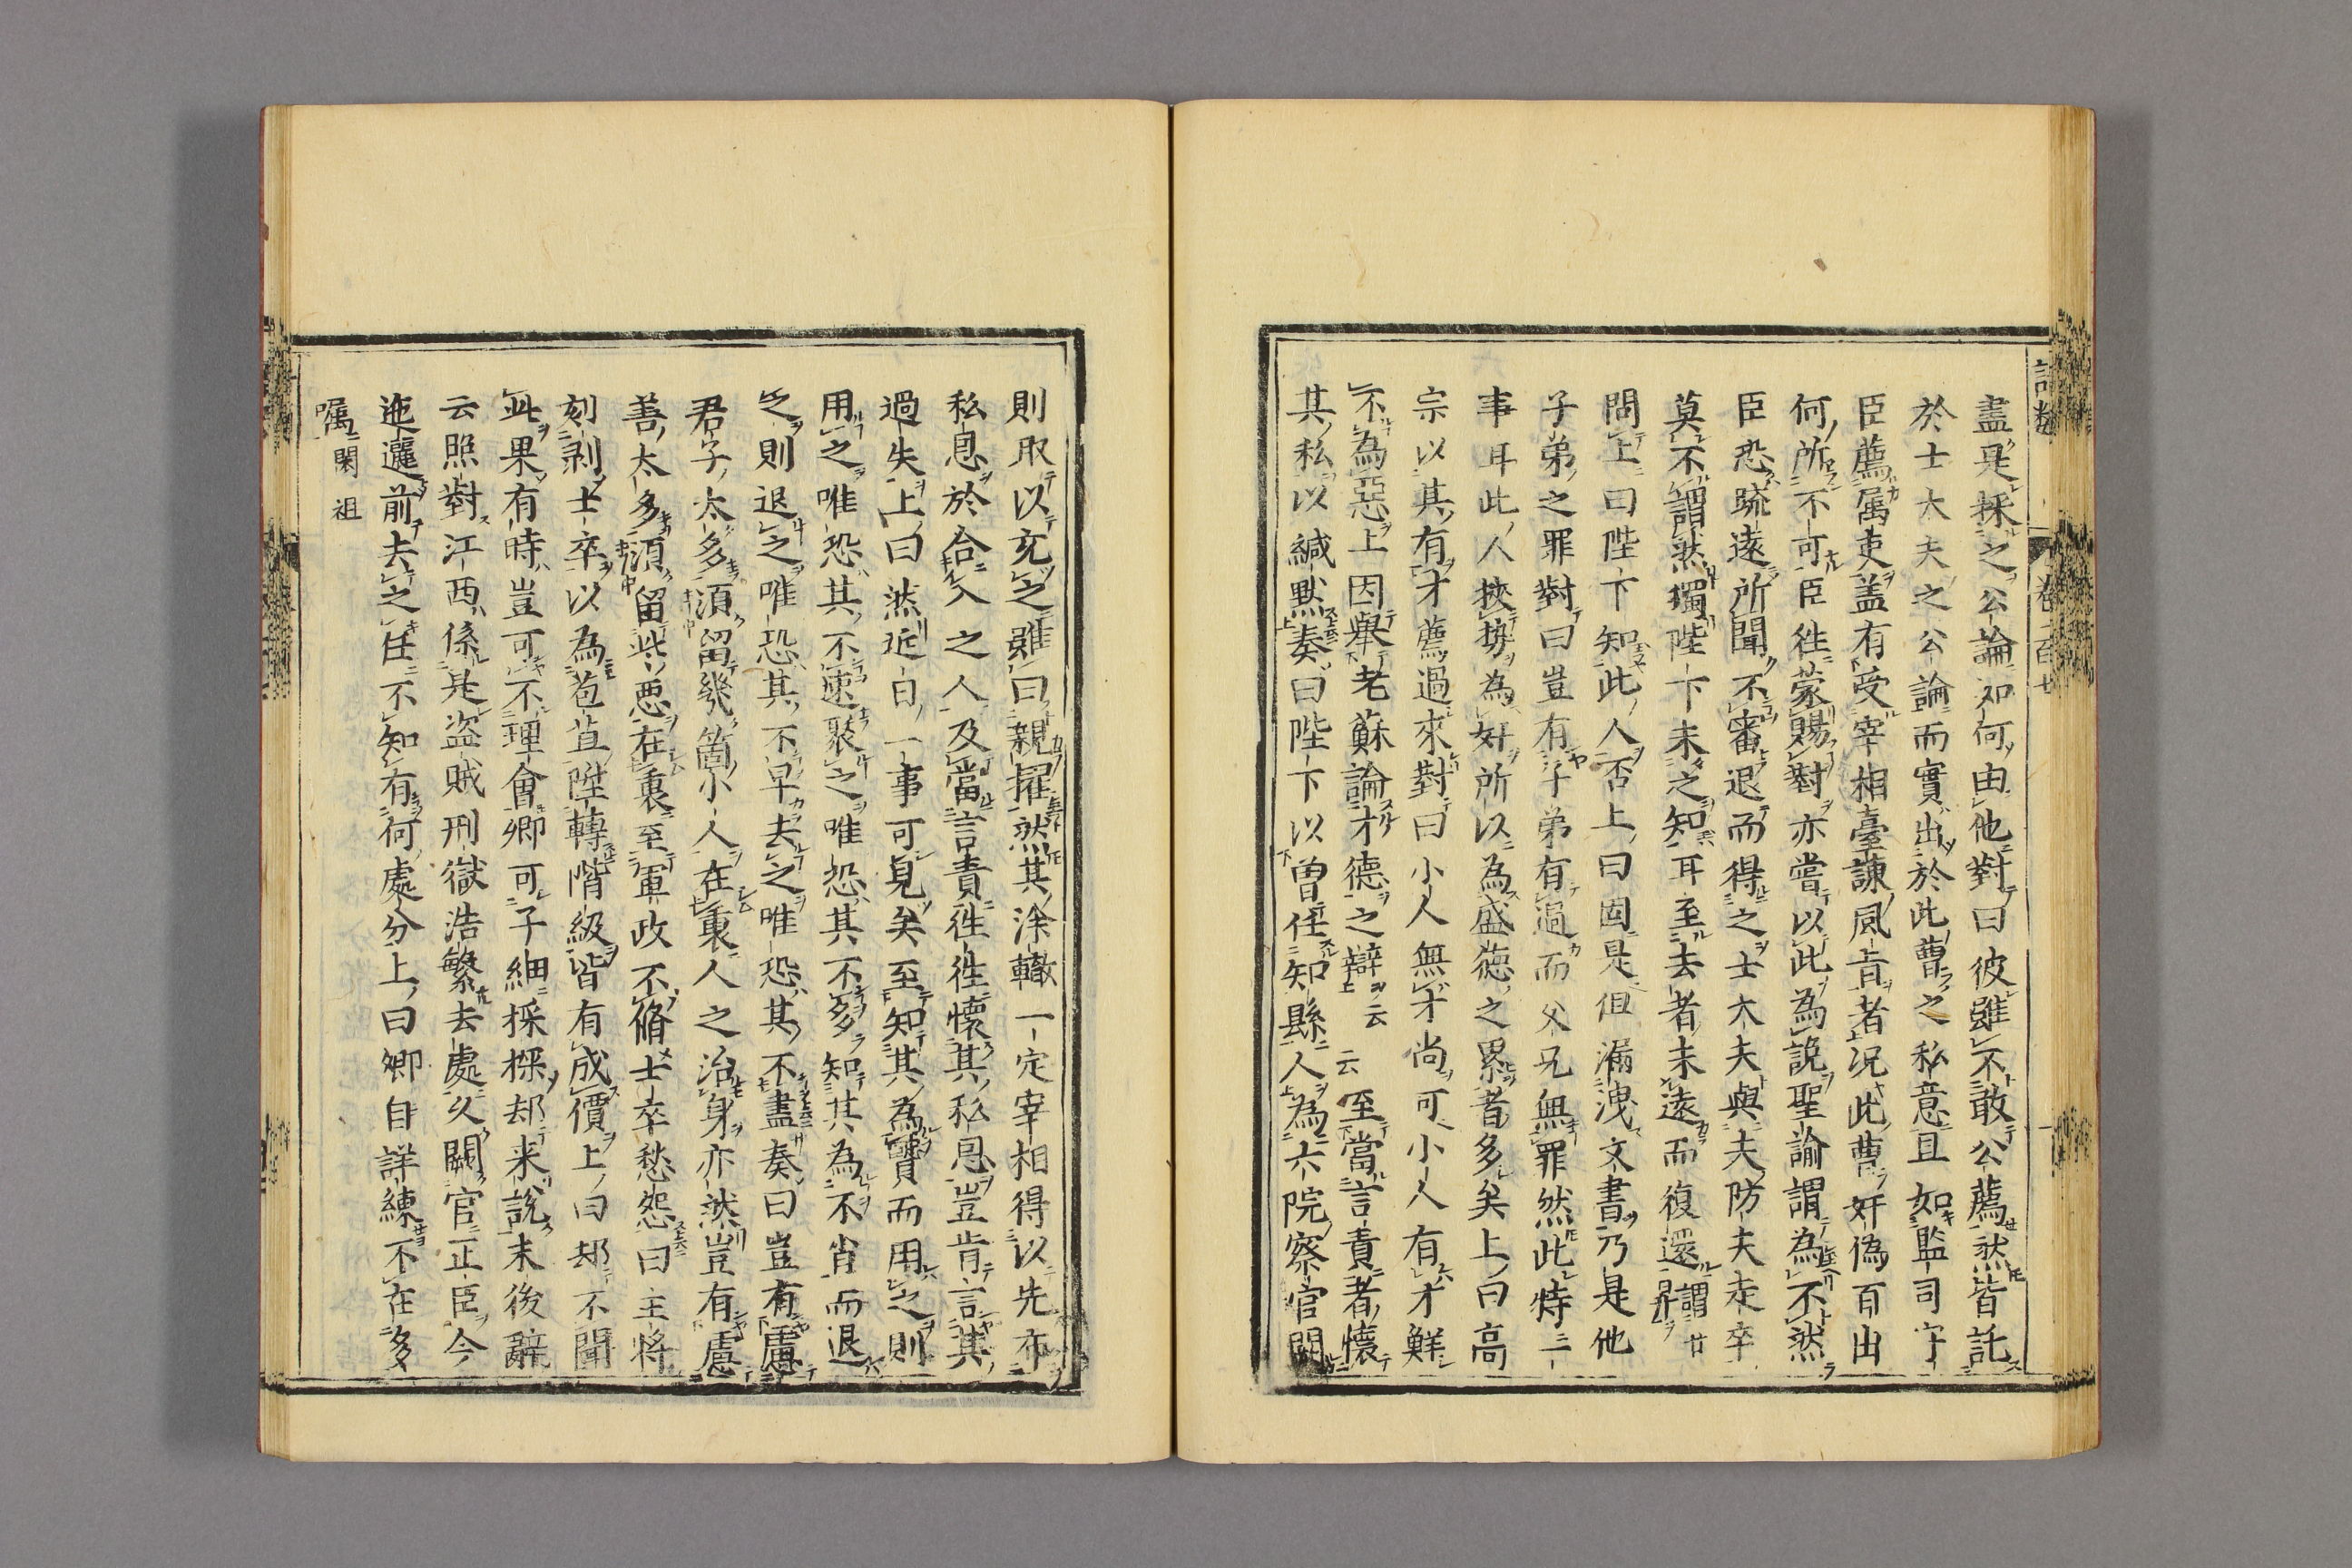 盡是採之公論如何由他對曰彼雖不敢公薦然皆託
於士大夫之公論而實出於此曹之私意且如監司守
臣薦属吏盖有受宰相臺諫風旨者况此曹奸偽百出
何所不可臣徃蒙賜對亦嘗以此為說聖諭謂為不然
臣恐疏遠所聞不審退而得之士大夫與夫防夫走卒
莫不謂然獨陛下未之知耳至去者未遠而復還謂甘昇
問上曰陛下知此人否上曰固是但漏洩文書乃是他
子弟之罪對曰豈有子弟有過而父兄無罪然此特二
事耳此人挾勢為奸所以為盛德之累者多矣上曰高
宗以其有才薦過來對曰小人無才尚可小人有才鮮
不為惡上因舉老蘇論才德之辯云云至當言責者懷
其私以緘默奏曰陛下以曽任知縣人為六院察官闕
則取以充之雖曰親擢然其塗轍一定宰相得以先布
私恩於合入之人及當言責徃徃懷其私恩豈肯言其
過失上曰然近日一事可見矣至知其為賢而用之則
用之唯恐其不速聚之唯恐其不多知其為不肖而退
之則退之唯恐其不早去之唯恐其不盡奏曰豈有慮
君子太多須留幾箇小人在裏人之治身亦然豈有慮
善太多須留些惡在裏至軍政不脩士卒愁怨曰主將
刻剥士卒以為苞苴陞轉階級皆有成價上曰却不聞
此果有時豈可不理會卿可子細採探却来說末後辭
云照對江西係是盗賊刑獄浩繁去處久闕官正臣今
迤邐前去之任不知有何處分上曰卿自詳練不在多
囑閎祖